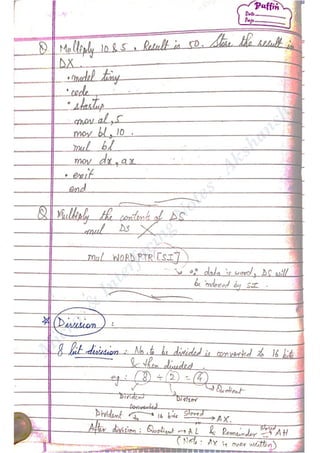 Puffin
Date
Page
Q) Multiply 10 & 5. Result is 50. Store the result in
DX.
• model tiny
• code
• startup
mov al, 5
mov bl, 10.
mul bl
mov dx, ax
• exit
end
Q) Multiply the contents of DS
mul DS
mul WORD PTR [SI]
data is word, DS will
be indexed by SI.
* Division :
8 bit division : No. to be divided is converted to 16 bits
& then divided.
eg: 8 ÷ 2 = 4
Quotient
Dividend Divisor
Dividend converted to 16 bits stored → AX.
After division : Quotient → AL & Remainder stored → AH
(Note : AX is over written)